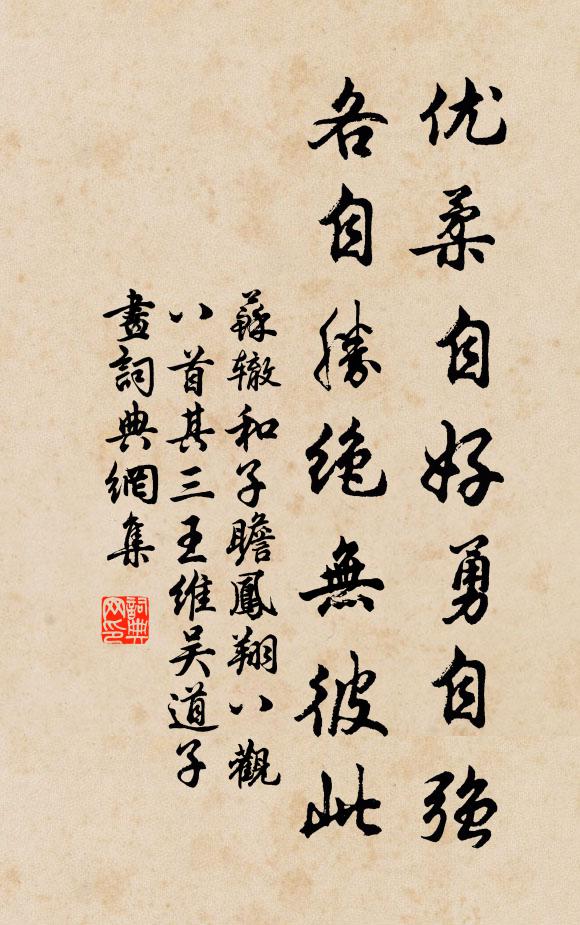 优柔自好勇自强
各自勝绝無彼此
蘇辙和子瞻鳳翔八觀
八首其三王维吴道子
畫詞典網集
詞典网印